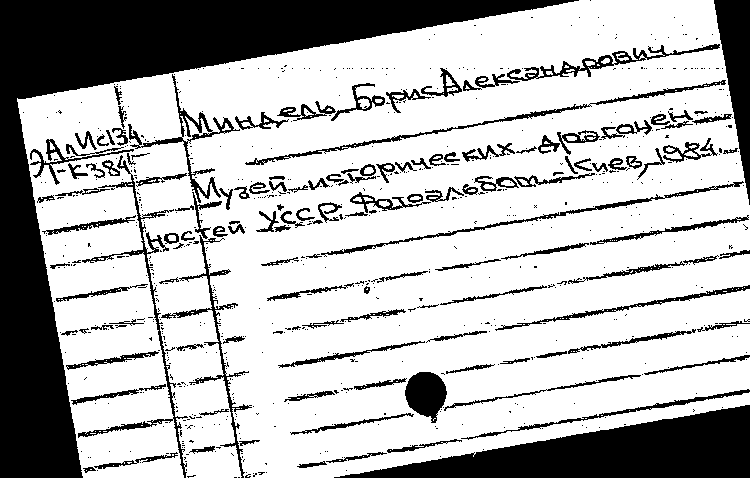 Миндель, Борис Александрович.
ЭАлИс134
Г-К384
Музей исторических драгоцен-
ностей УССР. Фотоальбом. - Киев, 1984.